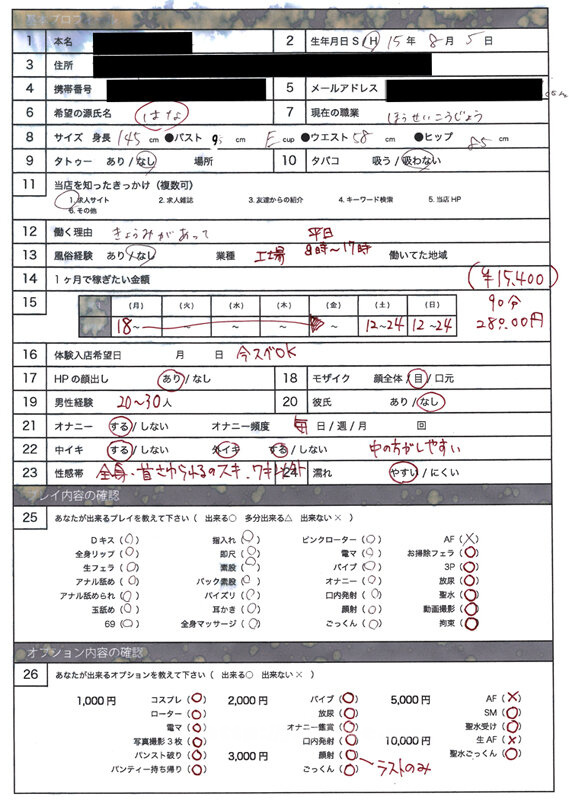 基本プロフィール
1 本名
2 生年月日 S/H 15年 8月 5日
3 住所
4 携帯番号
5 メールアドレス
6 希望の源氏名 はな
7 現在の職業 ほうせいこうじょう
8 サイズ 身長 145 cm ●バスト cm E cup ●ウエスト 58 cm ●ヒップ 85 cm
9 タトゥー あり/なし 場所
10 タバコ 吸う/吸わない
11 当店を知ったきっかけ(複数可)
1.求人サイト 2.求人雑誌 3.友達からの紹介 4.キーワード検索 5.当店HP
6.その他
12 働く理由 きょうみがあって 平日
13 風俗経験 あり/なし 業種 工場 8時〜17時 働いてた地域
14 1ヶ月で稼ぎたい金額 (¥15,400)
15 (月) (火) (水) (木) (金) (土) (日) 90分
18〜 〜 〜 〜 〜 12〜24 12〜24 28000円
16 体験入店希望日 月 日 今スグOK
17 HPの顔出し あり/なし
18 モザイク 顔全体/目/口元
19 男性経験 20〜30人
20 彼氏 あり/なし
21 オナニー する/しない オナニー頻度 毎 日/週/月 回
22 中イキ する/しない 外イキ する/しない 中の方がしやすい
23 性感帯 全身・首さわられるのスキ、
24 濡れ やすい/にくい
プレイ内容の確認
25 あなたが出来るプレイを教えて下さい ( 出来る○ 多分出来る△ 出来ない× )
Dキス (○) 指入れ (○) ピンクローター (○) AF (×)
全身リップ (○) 即尺 (○) 電マ (○) お掃除フェラ (○)
生フェラ (○) 素股 (○) バイブ (○) 3P (○)
アナル舐め (○) バック素股 (○) オナニー (○) 放尿 (○)
アナル舐められ (○) パイズリ (○) 口内発射 (○) 聖水 (○)
玉舐め (○) 耳かき (○) 顔射 (○) 動画撮影 (○)
69 (○) 全身マッサージ (○) ごっくん (○) 拘束 (○)
オプション内容の確認
26 あなたが出来るオプションを教えて下さい ( 出来る○ 出来ない× )
1,000円 コスプレ (○) 2,000円 バイブ (○) 5,000円 AF (×)
ローター (○) 放尿 (○) SM (○)
電マ (○) オナニー鑑賞 (○) 聖水受け (○)
写真撮影3枚 (○) 口内発射 (○) 10,000円 生AF (×)
パンスト破り (○) 3,000円 顔射 (○) 聖水ごっくん (○)
パンティー持ち帰り (○) ごっくん (○) ラストのみ